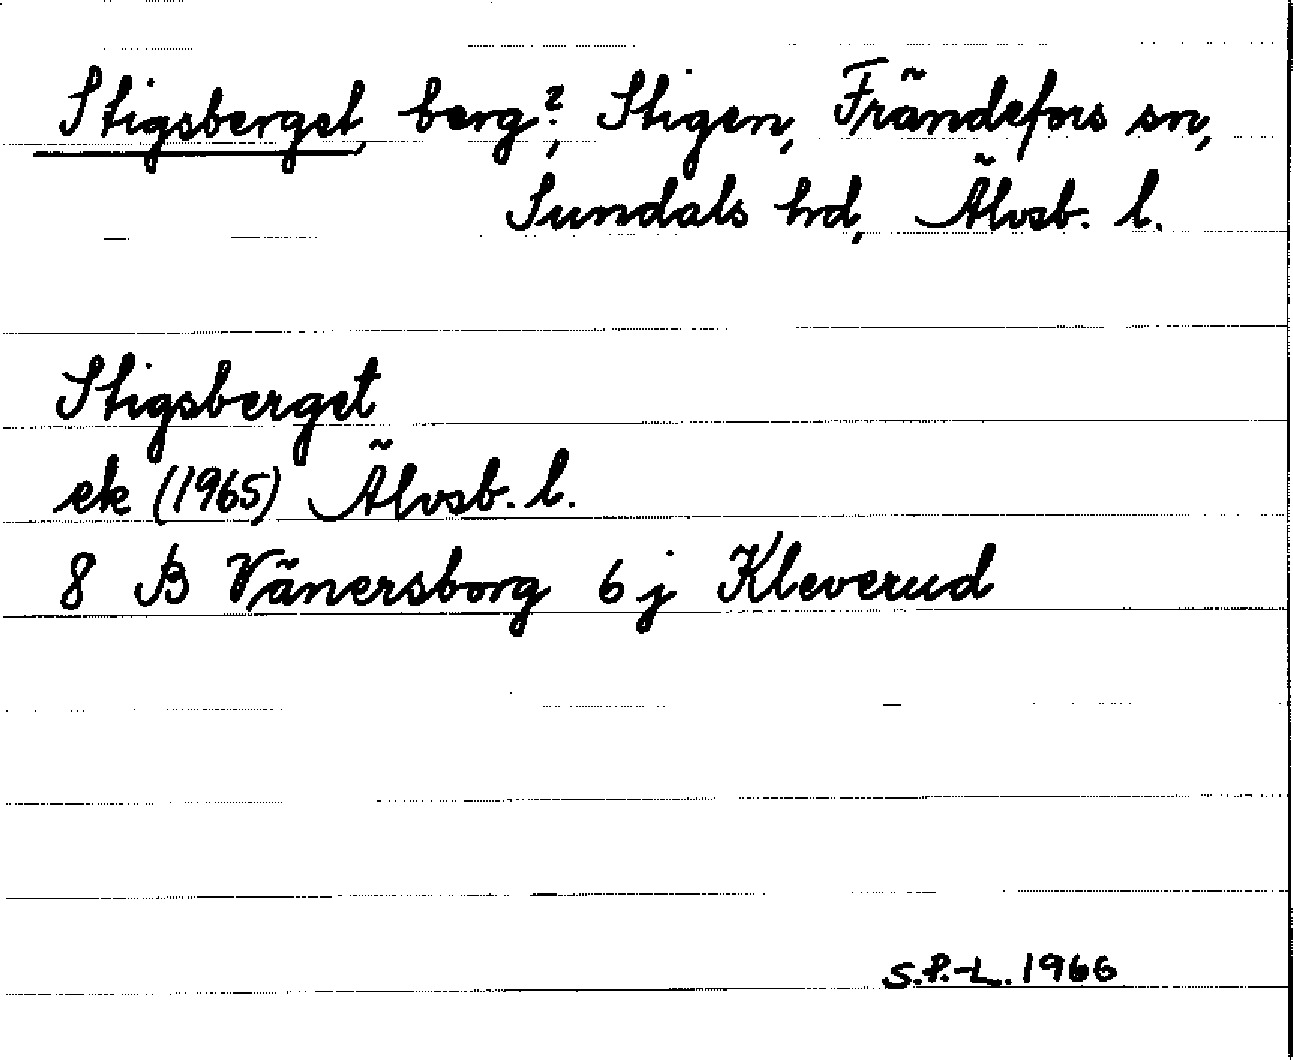 Stigsberget, berg?, Stigen, Frändefors sn,
Sundals hd, Älvsb. l.
Stigsberget
ek (1965) Älvsb. l.
8 B Vänersborg 6 j Kleverud
S.P.-L. 1966